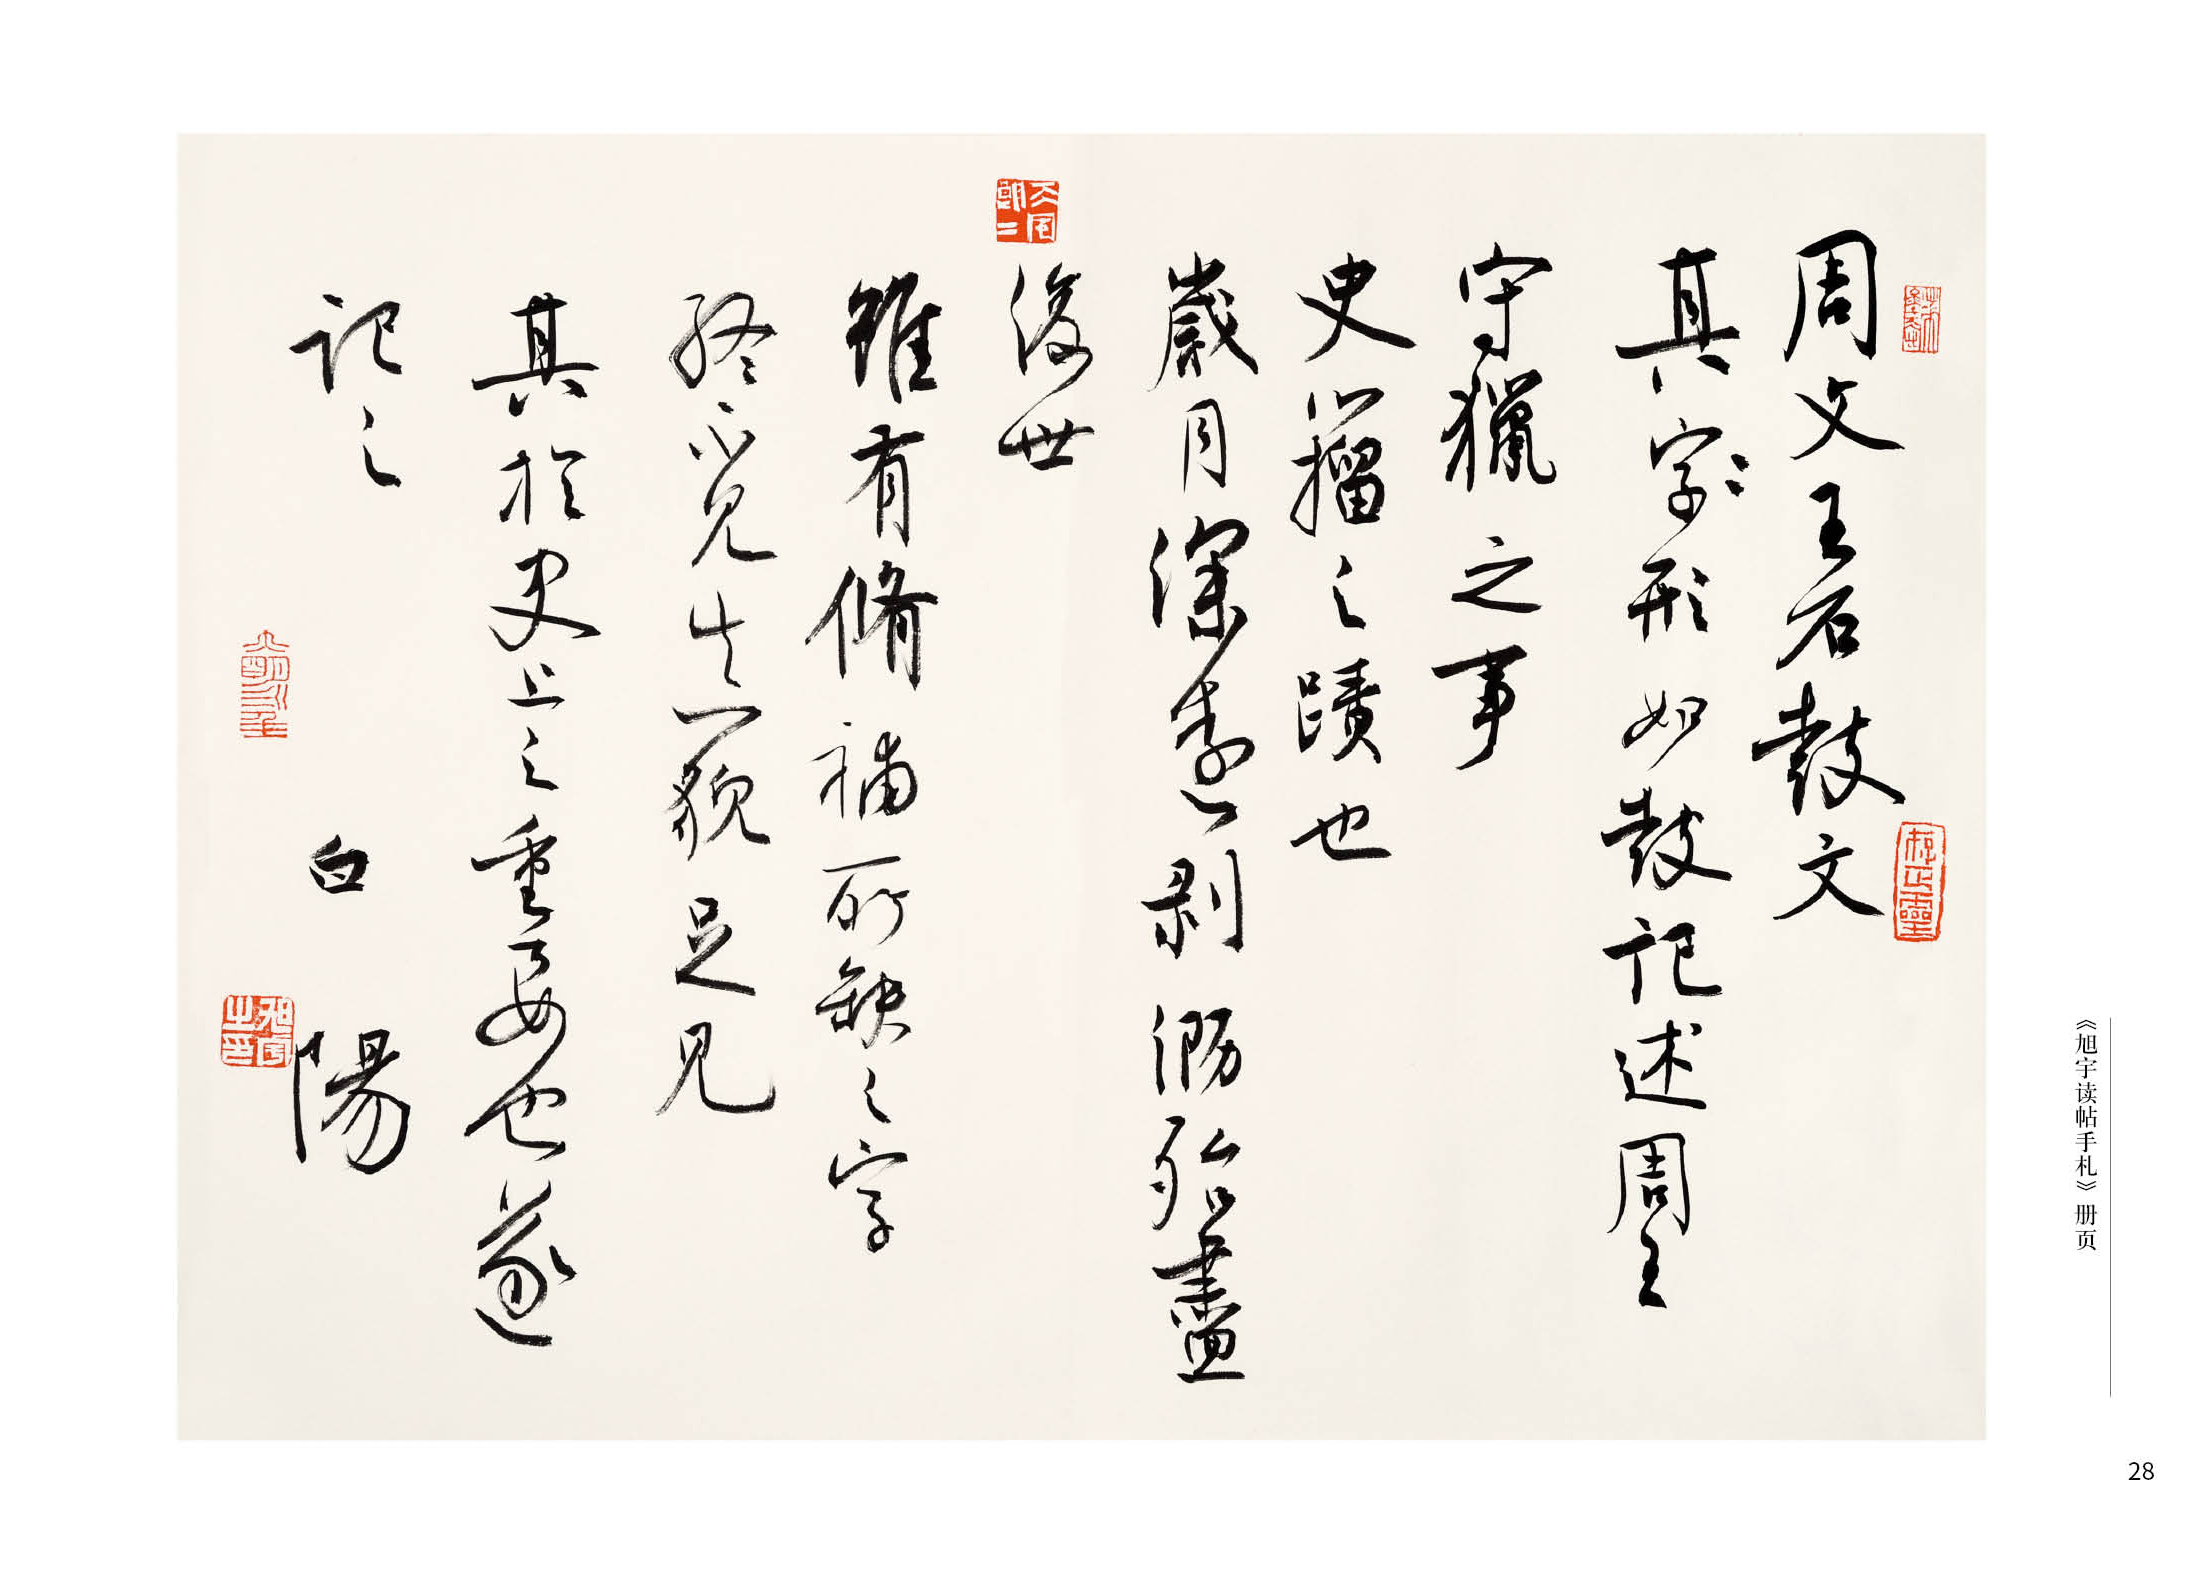 周文王石鼓文
真字形如鼓記述周王
守獵之事
史籀之蹟也
歲月深遠剥泐殆盡
後世
雖有脩補所缺之字
終不見生貌足見
其於史上之重要也遂
記之
白陽
《旭宇读帖手札》册页
28